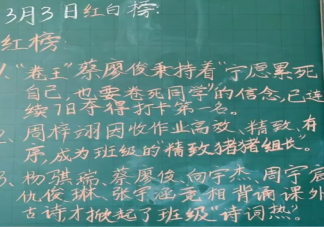 3月3日红白榜:
红榜:
1、"卷王"蔡廖俊秉持着"宁愿累死
自己,也要卷死同学"的信念,已连
续7日夺得打卡第一名。
2、周梓翊因收作业高效、精致、有
序,成为班级的"精致猪猪组长"。
3、杨骐瑞、蔡廖俊、向宇杰、周宇宸
仇俊琳、张宇涵竞相背诵课外
古诗才掀起了班级"诗词热"。